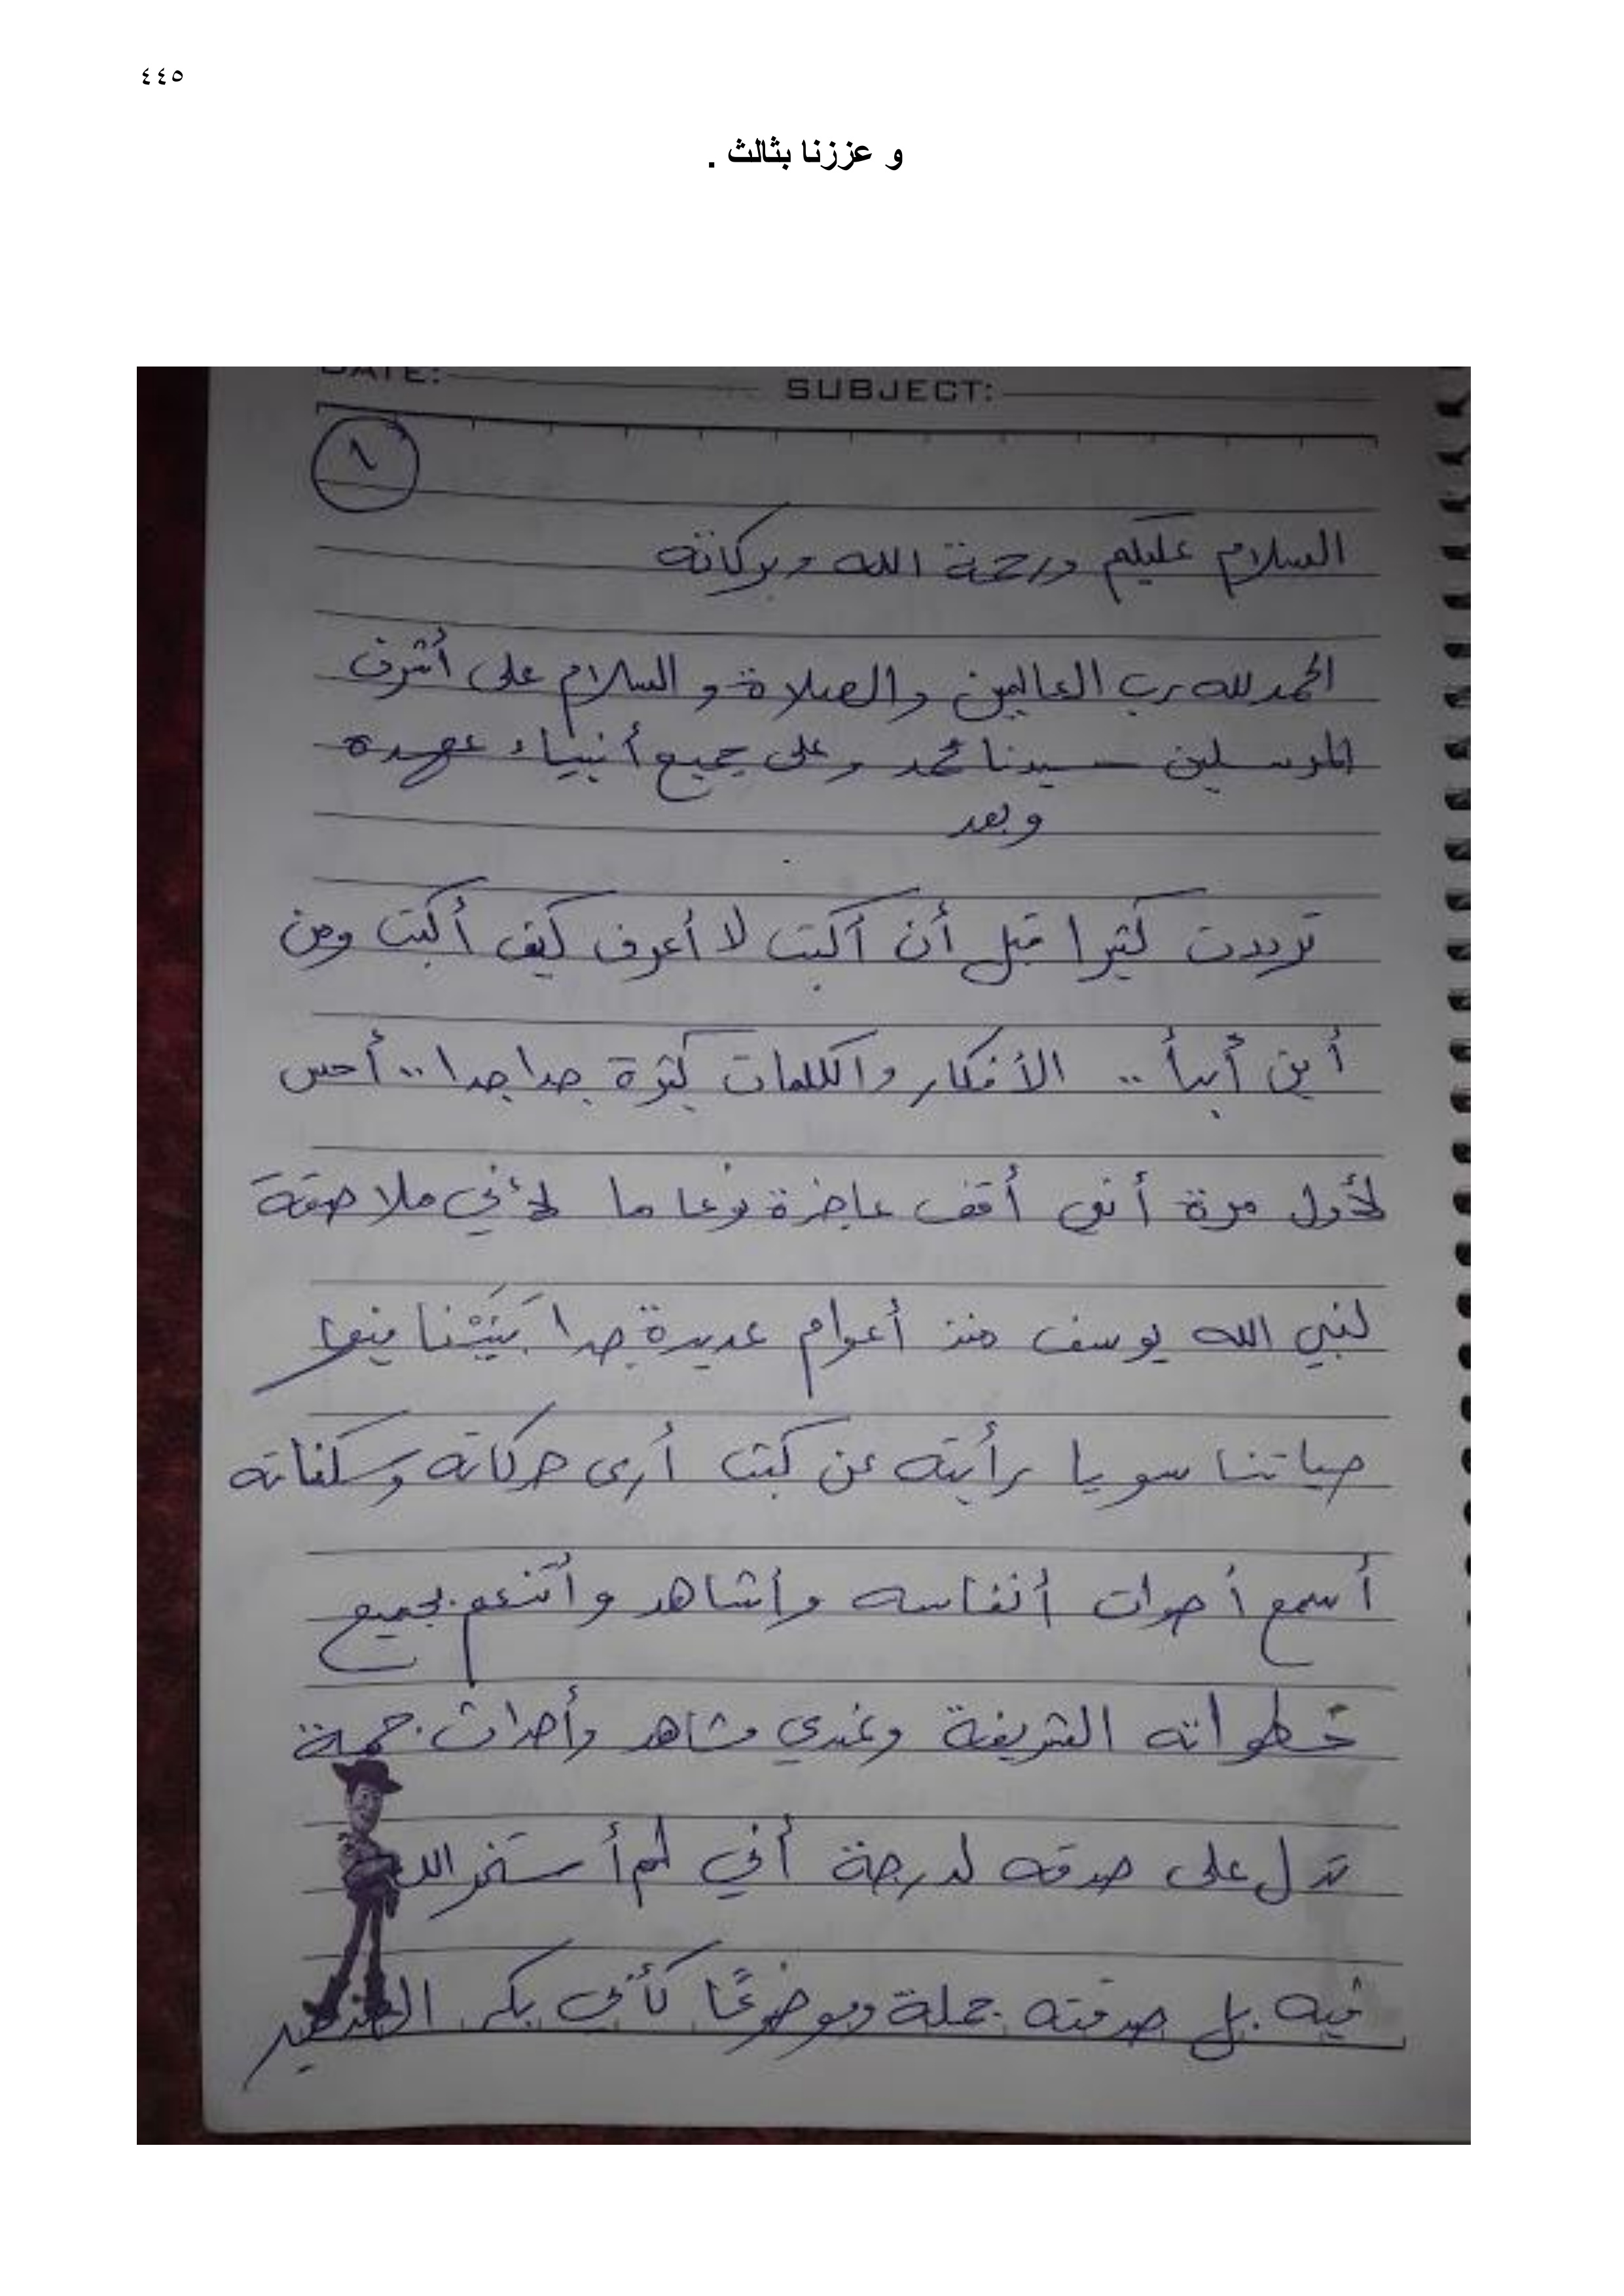 ٤٤٥
و عززنا بثالث .
DATE: SUBJECT:
١
السلام عليكم ورحمة الله وبركاته
الحمد لله رب العالمين والصلاة والسلام على أشرف
المرسلين سيدنا محمد وعلى جميع أنبياء عهده
وبعد
ترددت كثيرا قبل أن أكتب لا أعرف كيف أكتب ومن
أين أبدأ .. الأفكار والكلمات كثيرة جدا جدا .. أحس
لأول مرة أنى أقف عاجزة نوعا ما لأني ملاصقة
لنبي الله يوسف منذ أعوام عديدة جدا بَنَيْنا فيها
حياتنا سويا رأيته عن كثب أرى حركاته وسكناته
أسمع أصوات أنفاسه وأشاهد وأتنعم بجميع
خطواته الشريفة وعندي مشاهد وأحداث جمة
تدل على صدقه لدرجة أني لم أستخر الله
فيه بل صدقته جملة وموضوعًا كأنى بكر